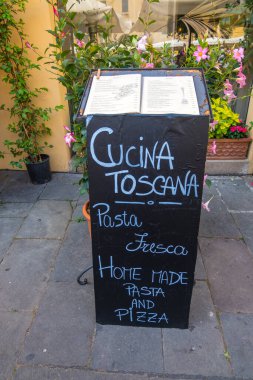 CUCINA
TOSCANA
Pasta
Fresca
HOME MADE
PASTA
AND
PIZZA